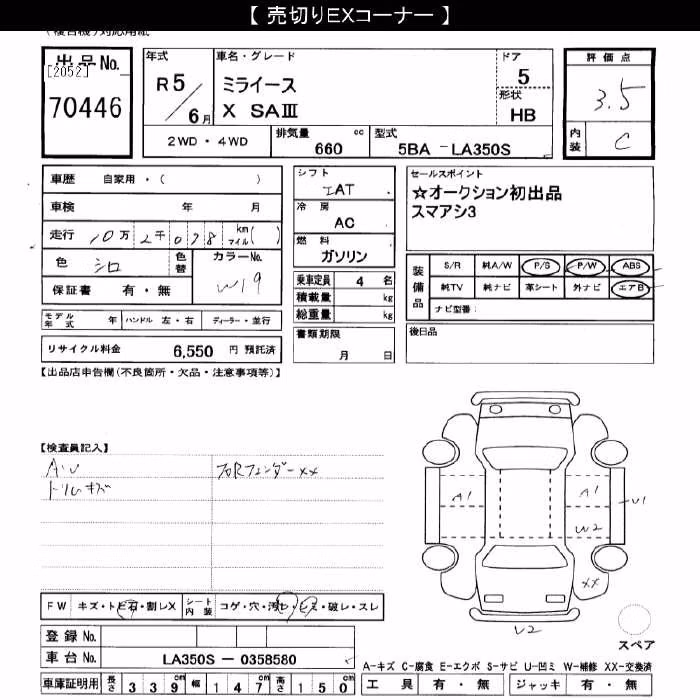 【 売切りEXコーナー 】
出品No.
[2052]
70446
年式
R 5 / 6月
車名・グレード
ミライース
X SAⅢ
ドア
5
形状
HB
評価点
3.5
内装
C
2WD・4WD
排気量 cc
660
型式
5BA -LA350S
車歴 自家用・( )
車検 年 月
走行 10万 2千 078 km マイル( )
色 シロ
色替
カラーNo.
W19
保証書 有・無
シフト
IAT
冷房
AC
燃料
ガソリン
乗車定員 4 名
積載量 kg
総重量 kg
書類期限
月 日
セールスポイント
☆オークション初出品
スマアシ3
装備品
S/R 純A/W P/S P/W ABS
純TV 純ナビ 革シート 外ナビ エアB
ナビ型番:
後日品
モデル年式 年 ハンドル 左・右 ディーラー・並行
リサイクル料金 6,550 円 預託済
【出品店申告欄(不良箇所・欠品・注意事項等)】
【検査員記入】
A・U
トリムキズ
右Rフェンダーxx
A1
A1
U1
W2
XX
U2
スペア
FW キズ・トビ石・割レX
シート内装 コゲ・穴・汚レ・シミ・破レ・スレ
登録No.
車台No. LA350S - 0358580
車庫証明用 長さ 339cm 幅 147cm 高さ 150cm
A-キズ C-腐食 E-エクボ S-サビ U-凹ミ W-補修 XX-交換済
工具 有・無 ジャッキ 有・無